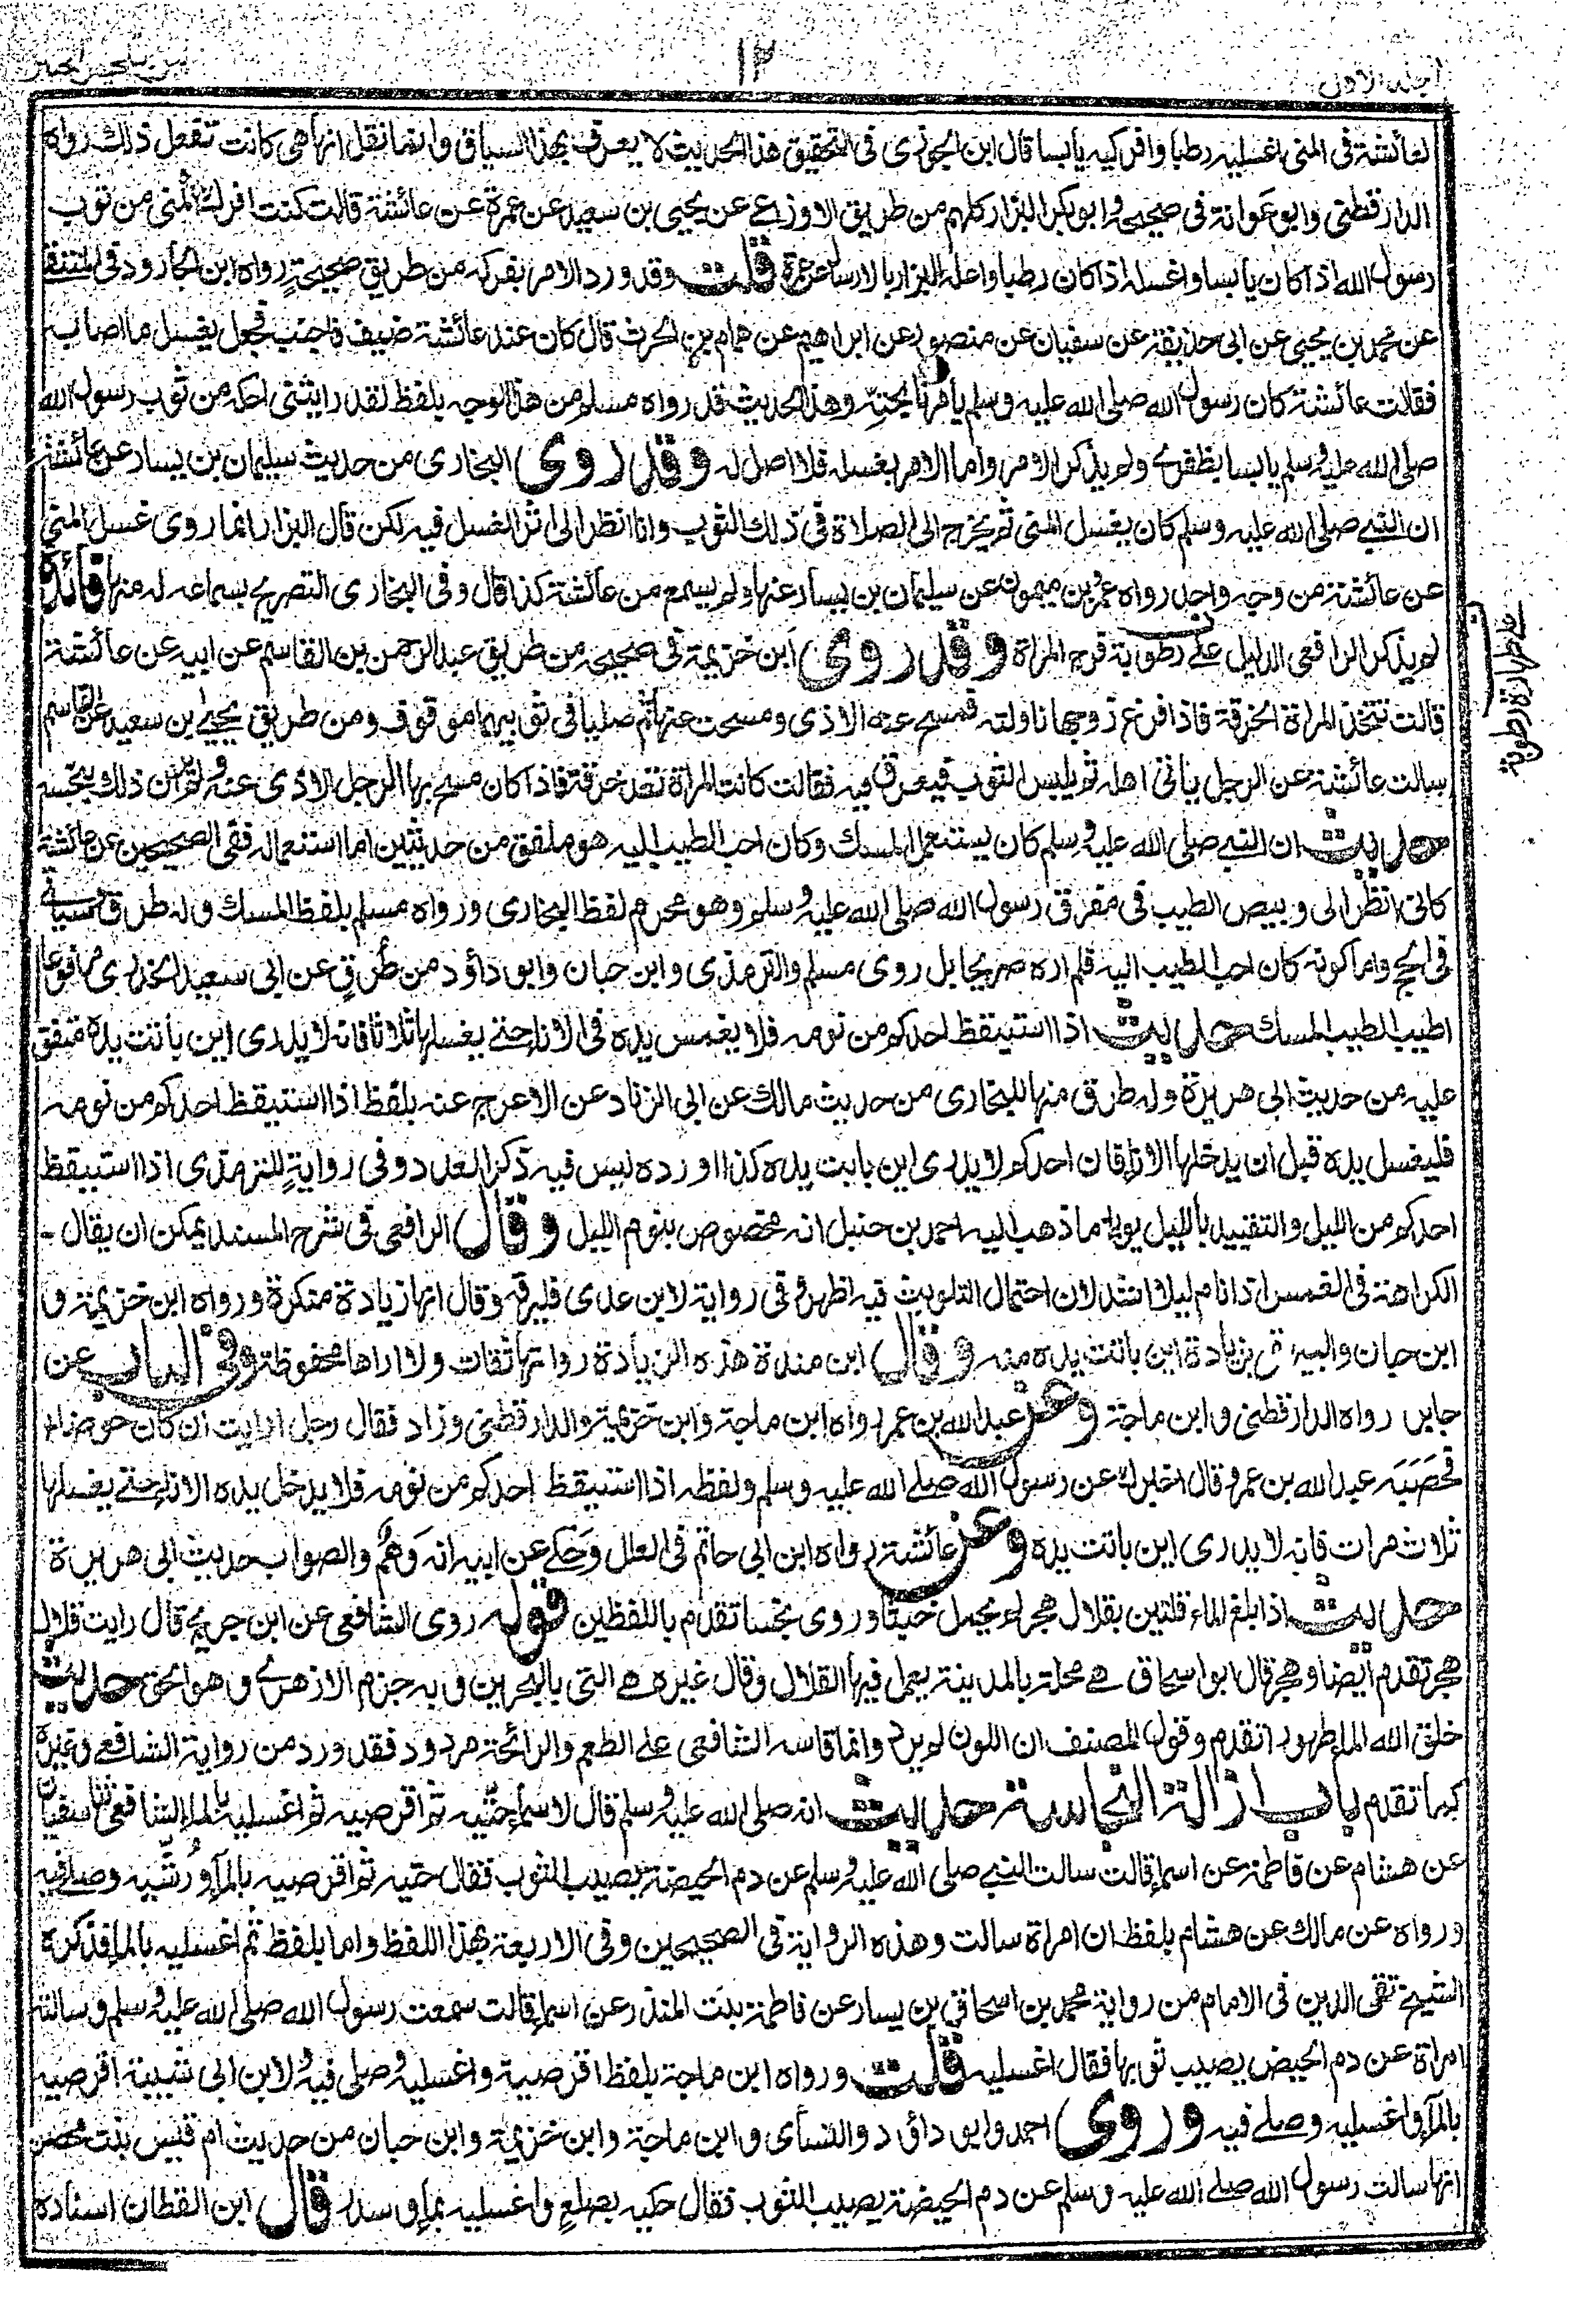 الجلد الاول
١٢
من تلخيص الحبير
لعائشة فى المنى اغسليه رطبا وافركيه يابسا قال ابن الجوزى فى التحقيق هذا الحديث لا يعرف بهذا السياق وانما نقل انها هى كانت تفعل ذلك رواه
الدارقطنى وابو عوانة فى صحيحه وابو بكر البزار كلهم من طريق الاوزاعى عن يحيى بن سعيد عن عمرة عن عائشة قالت كنت افرك المنى من ثوب
رسول الله اذا كان يابسا واغسله اذا كان رطبا واعله البزار بالارسال عن عمرة قلت وقد ورد الامر بفركه من طريق صحيحةٍ رواه ابن الجارود فى المنتقى
عن محمد بن يحيى عن ابى حذيفة عن سفيان عن منصور عن ابراهيم عن همام بن الحرث قال كان عند عائشة ضيف فاجنب فجعل يغسل ما اصابه
فقالت عائشة كان رسول الله صلى الله عليه وسلم يأمرنا بحته وهذا الحديث قد رواه مسلم من هذا الوجه بلفظ لقد رايتنى احكه من ثوب رسول الله
صلى الله عليه وسلم يابسا بظفرى ولم يذكر الامر واما الامر بغسله فلا اصل له وقد روى البخارى من حديث سليمان بن يسار عن عائشة
ان النبى صلى الله عليه وسلم كان يغسل المنى ثم يخرج الى الصلاة فى ذلك الثوب وانا انظر الى اثر الغسل فيه لكن قال البزار انما روى غسل المنى
عن عائشة من وجه واحد رواه عمرو بن ميمون عن سليمان بن يسار عنها ولم يسمع من عائشة كذا قال وفى البخارى التصريح بسماعه له منها فائدة
لم يذكر الرافعى الدليل على رطوبة فرج المراة وقد روى ابن خزيمة فى صحيحه من طريق عبد الرحمن بن القاسم عن ابيه عن عائشة
قالت تتخذ المراة الخرقة فاذا فرغ زوجها ناولته فمسح عنه الاذى ومسحت عنها ثم صليا فى ثوبيهما موقوف ومن طريق يحيى بن سعيد عن القاسم
سالت عائشة عن الرجل ياتى اهله ثم يلبس الثوب فيعرق فيه فقالت كانت المراة تعد خرقة فاذا كان مسح بها الرجل الاذى عنه ولم ير ان ذلك ينجسه
حديث ان النبى صلى الله عليه وسلم كان يستعمل المسك وكان احب الطيب اليه هو ملفق من حديثين اما استعماله ففى الصحيحين عن عائشة
كانى انظر الى وبيص الطيب فى مفرق رسول الله صلى الله عليه وسلم وهو محرم لفظ البخارى ورواه مسلم بلفظ المسك وله طرق ستاتى
فى الحج واما كونه كان احب الطيب اليه فلم اره صريحا بل روى مسلم والترمذى وابن حبان وابو داؤد من طُرقٍ عن ابى سعيد الخدرى مرفوعا
اطيب الطيب المسك حديث اذا استيقظ احدكم من نومه فلا يغمس يده فى الاناء حتى يغسلها ثلاثا فانه لا يدرى اين باتت يده متفق
عليه من حديث ابى هريرة وله طرق منها للبخارى من حديث مالك عن ابى الزناد عن الاعرج عنه بلفظ اذا استيقظ احدكم من نومه
فليغسل يده قبل ان يدخلها الاناء فان احدكم لا يدرى اين باتت يده كذا اورده ليس فيه ذكر العدد وفى روايةٍ للترمذى اذا استيقظ
احدكم من الليل والتقييد بالليل يويد ما ذهب اليه احمد بن حنبل انه مخصوص بنوم الليل وقال الرافعى فى شرح المسند يمكن ان يقال
الكراهة فى الغمس اذا نام ليلا اشد لان احتمال التلويث فيه اظهر وفى رواية لابن عدى فليرقه وقال انها زيادة منكرة ورواه ابن خزيمة و
ابن حبان والبيهقى بزيادة اين باتت يده منه وقال ابن مندة هذه الزيادة رواتها ثقات ولا اراها محفوظة وفى الباب عن
جابر رواه الدارقطنى وابن ماجة وعن عبد الله بن عمر رواه ابن ماجة وابن خزيمة والدارقطنى وزاد فقال رجل ارايت ان كان حوضا
فحَصَبَه عبد الله بن عمر وقال اخبرك عن رسول الله صلى الله عليه وسلم ولفظه اذا استيقظ احدكم من نومه فلا يدخل يده الاناء حتى يغسلها
ثلاث مرات فانه لا يدرى اين باتت يده وعن عائشة رواه ابن ابى حاتم فى العلل وحكى عن ابيه انه وَهْمٌ والصواب حديث ابى هريرة
حديث اذا بلغ الماء قلتين بقلال هجر لم يحمل خبثا وروى نجسا تقدم باللفظين قوله روى الشافعى عن ابن جريج قال رايت قلال
هجر تقدم ايضا وهجر قال ابو اسحاق هى محلة بالمدينة يعمل فيها القلال وقال غيره هى التى بالبحرين وبه جزم الازهرى وهو الحق حديث
خلق الله الماء طهورا تقدم وقول المصنف ان اللون لم يرد وانما قاسه الشافعى على الطعم والرائحة مردود فقد ورد من رواية الشافعى وغيره
كما تقدم باب ازالة النجاسة حديث انه صلى الله عليه وسلم قال لاسماء حتيه ثم اقرصيه ثم اغسليه بالماء الشافعى ثنا سفيان
عن هشام عن فاطمة عن اسماء قالت سالت النبى صلى الله عليه وسلم عن دم الحيضة يصيب الثوب فقال حتيه ثم اقرصيه بالماء ورُشّيه وصلى فيه
ورواه عن مالك عن هشام بلفظ ان امراة سالت وهذه الرواية فى الصحيحين وفى الاربعة بهذا اللفظ واما بلفظ ثم اغسليه بالماء فذكره
الشيخ تقى الدين فى الامام من رواية محمد بن اسحاق بن يسار عن فاطمة بنت المنذر عن اسماء قالت سمعت رسول الله صلى الله عليه وسلم وسالته
امراة عن دم الحيض يصيب ثوبها فقال اغسليه قلت ورواه ابن ماجة بلفظ اقرصيه واغسليه وصلى فيه ولابن ابى شيبة اقرصيه
بالماء واغسليه وصلى فيه وروى احمد وابو داؤد والنساى وابن ماجة وابن خزيمة وابن حبان من حديث ام قيس بنت محصن
انها سالت رسول الله صلى الله عليه وسلم عن دم الحيضة يصيب الثوب فقال حكيه بصلعٍ واغسليه بماء وسدر قال ابن القطان اسناده
على طهارة رطوبة